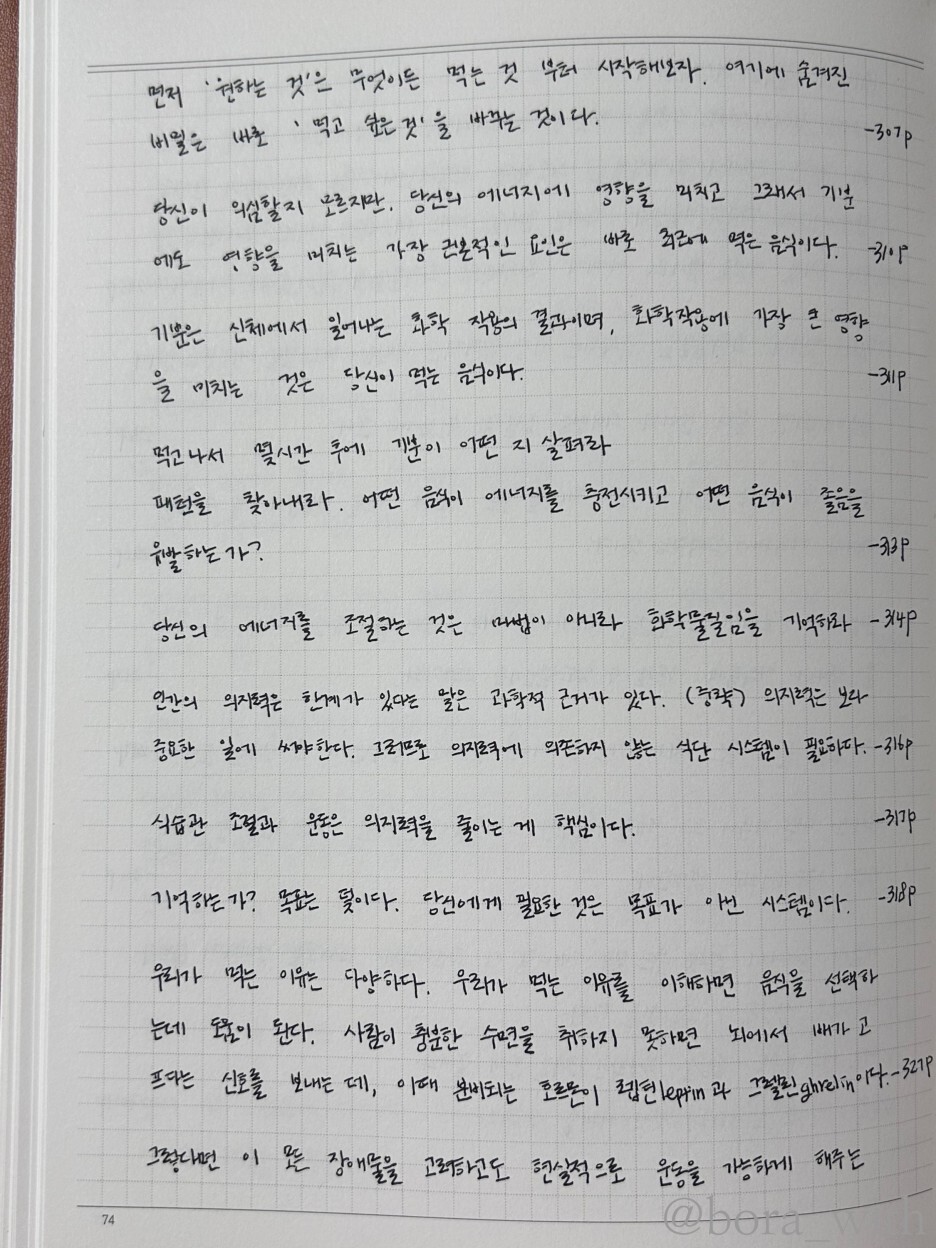 먼저 '원하는 것'은 무엇이든 먹는 것 부터 시작해보자. 여기에 숨겨진
비밀은 바로 '먹고 싶은 것'을 바꾸는 것이다. -307p
당신이 의심할지 모르지만, 당신의 에너지에 영향을 미치고 그래서 기분
에도 영향을 미치는 가장 근본적인 요인은 바로 최근에 먹은 음식이다. -310p
기분은 신체에서 일어나는 화학 작용의 결과이며, 화학작용에 가장 큰 영향
을 미치는 것은 당신이 먹는 음식이다. -311p
먹고나서 몇시간 후에 기분이 어떤 지 살펴라
패턴을 찾아내라. 어떤 음식이 에너지를 충전시키고 어떤 음식이 졸음을
유발하는가? -313p
당신의 에너지를 조절하는 것은 마법이 아니라 화학물질임을 기억하라 -314p
인간의 의지력은 한계가 있다는 말은 과학적 근거가 있다. (중략) 의지력은 보다
중요한 일에 써야한다. 그러므로 의지력에 의존하지 않는 식단 시스템이 필요하다. -316p
식습관 조절과 운동은 의지력을 줄이는 게 핵심이다. -317p
기억하는가? 목표는 덫이다. 당신에게 필요한 것은 목표가 아닌 시스템이다. -318p
우리가 먹는 이유는 다양하다. 우리가 먹는 이유를 이해하면 음식을 선택하
는데 도움이 된다. 사람이 충분한 수면을 취하지 못하면 뇌에서 배가 고
프다는 신호를 보내는 데, 이때 분비되는 호르몬이 렙틴leptin과 그렐린ghrelin이다. -327p
그렇다면 이 모든 장애물을 고려하고도 현실적으로 운동을 가능하게 해주는
74